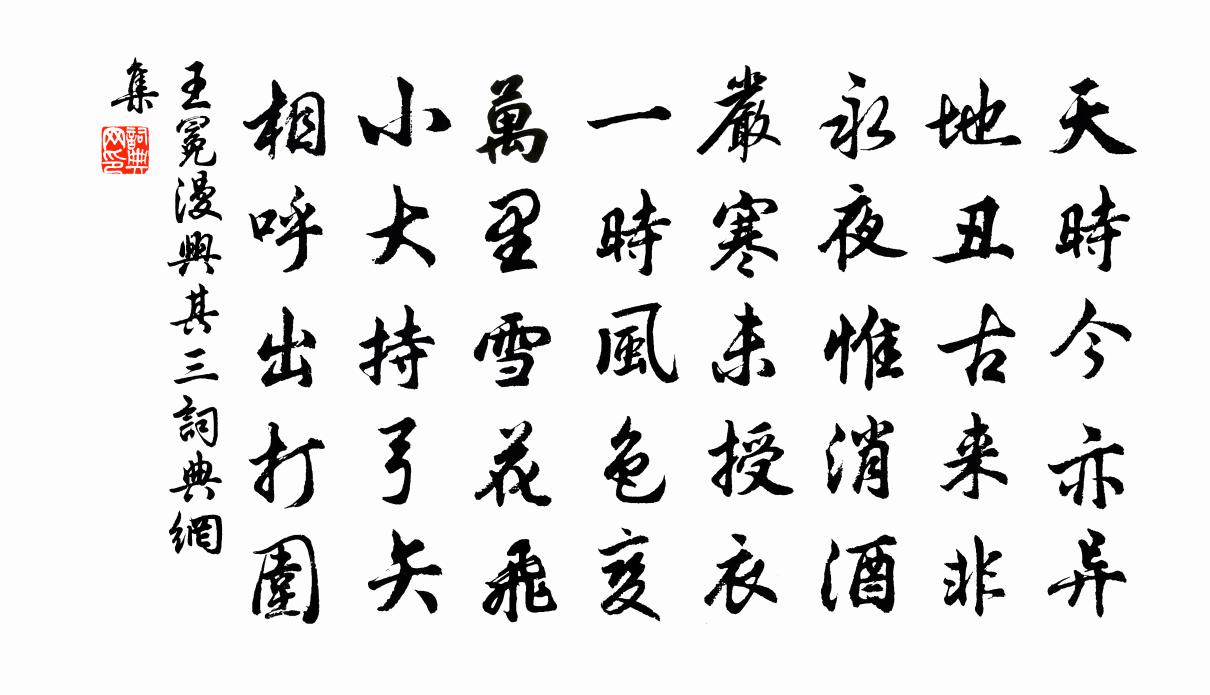 天時今亦异
地丑古来非
永夜惟消酒
嚴寒未授衣
一時風色变
萬里雪花飛
小大持弓矢
相呼出打圍
王冕漫興其三詞典網
集
詞典
网印